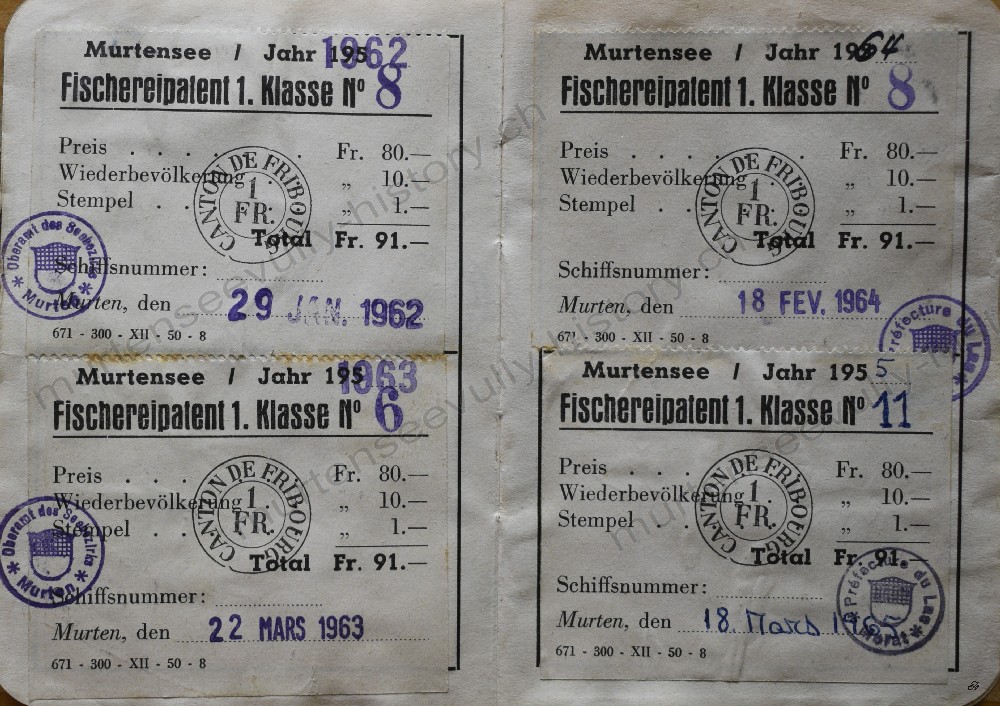 Murtensee / Jahr 195 1962
Fischereipatent 1. Klasse Nº 8
Preis . . . . . . . Fr. 80.—
Wiederbevölkerung „ 10.—
Stempel . . „ 1.—
Total Fr. 91.—
CANTON DE FRIBOURG
1
FR.
Schiffsnummer:
Murten, den 29 JAN. 1962
671 - 300 - XII - 50 - 8
Oberamt des Seebezirks
* Murten *
Murtensee / Jahr 195 1963
Fischereipatent 1. Klasse Nº 6
Preis . . . . Fr. 80.—
Wiederbevölkerung „ 10.—
Stempel . . „ 1.—
Total Fr. 91.—
CANTON DE FRIBOURG
1
FR.
Schiffsnummer:
Murten, den 22 MARS 1963
671 - 300 - XII - 50 - 8
Oberamt des Seebezirks
* Murten *
Murtensee / Jahr 1964
Fischereipatent 1. Klasse Nº 8
Preis . . . . . . . Fr. 80.—
Wiederbevölkerung „ 10.—
Stempel . . „ 1.—
Total Fr. 91.—
CANTON DE FRIBOURG
1
FR.
Schiffsnummer:
Murten, den 18 FEV. 1964
671 - 300 - XII - 50 - 8
Préfecture du Lac
Murtensee / Jahr 195
Fischereipatent 1. Klasse Nº 11
Preis . . . . Fr. 80.—
Wiederbevölkerung „ 10.—
Stempel . . „ 1.—
Total Fr. 91.—
CANTON DE FRIBOURG
1
FR.
Schiffsnummer:
Murten, den 18. Mars
671 - 300 - XII - 50 - 8
Préfecture du Lac
* Morat *
murtenseevully-history.ch
murtenseevully-history.ch
murtenseevully-h